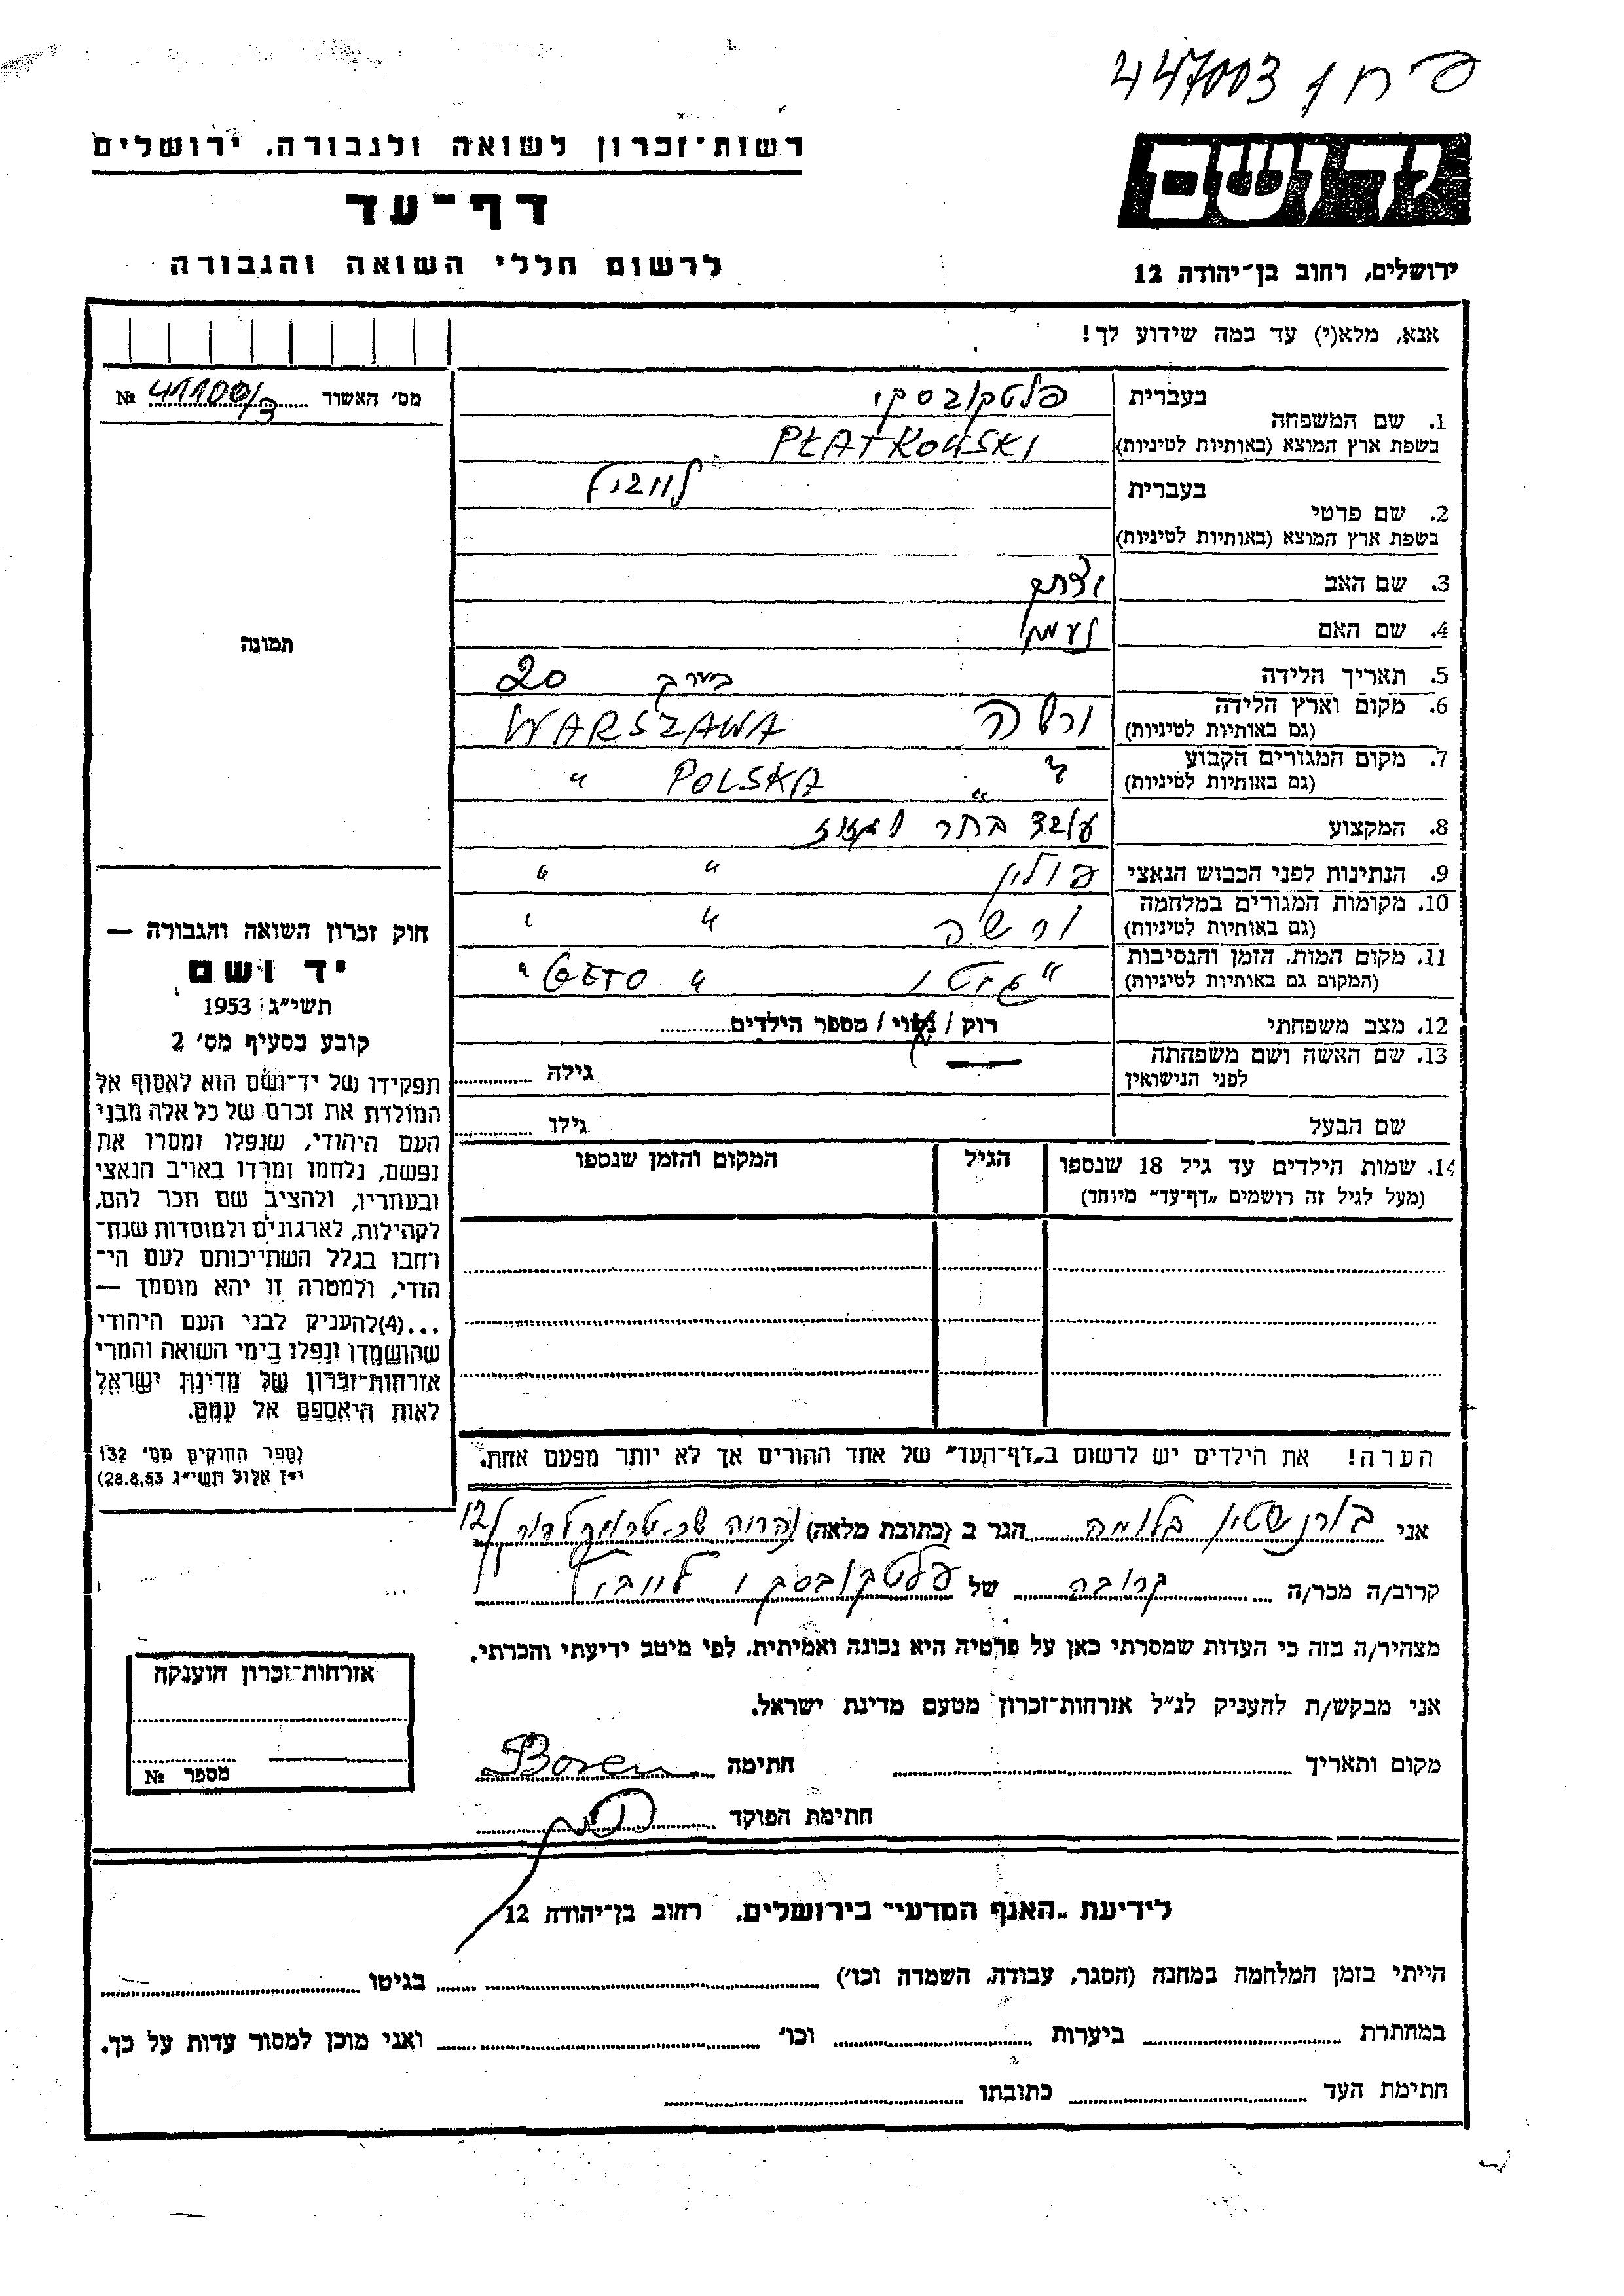 447003
יד ושם
רשות-זכרון לשואה ולגבורה, ירושלים
דף-עד
לרשום חללי השואה והגבורה
ירושלים, רחוב בן-יהודה 12
אנא, מלא(י) עד כמה שידוע לך!
מס׳ האשור 41100/3 №
תמונה
1. שם המשפחה
בעברית פלטקובסקי
בשפת ארץ המוצא (באותיות לטיניות) PŁATKOWSKI
2. שם פרטי
בעברית
בשפת ארץ המוצא (באותיות לטיניות)
3. שם האב
4. שם האם
5. תאריך הלידה בערך 20
6. מקום וארץ הלידה ורשה WARSZAWA
(גם באותיות לטיניות)
7. מקום המגורים הקבוע " " POLSKA "
(גם באותיות לטיניות)
8. המקצוע
9. הנתינות לפני הכבוש הנאצי פולין " "
10. מקומות המגורים במלחמה ורשה " "
(גם באותיות לטיניות)
11. מקום המות, הזמן והנסיבות " גיטו " GETO "
(המקום גם באותיות לטיניות)
12. מצב משפחתי רוק / נשוי / מספר הילדים
13. שם האשה ושם משפחתה לפני הנישואין — גילה
שם הבעל גילו
14. שמות הילדים עד גיל 18 שנספו הגיל המקום והזמן שנספו
(מעל לגיל זה רושמים „דף-עד״ מיוחד)
הערה! את הילדים יש לרשום ב„דף-העד״ של אחד ההורים אך לא יותר מפעם אחת.
חוק זכרון השואה והגבורה —
יד ושם
תשי״ג 1953
קובע בסעיף מס׳ 2
תפקידו של יד-ושם הוא לאסוף אל
המולדת את זכרם של כל אלה מבני
העם היהודי, שנפלו ומסרו את
נפשם, נלחמו ומרדו באויב הנאצי
ובעוזריו, ולהציב שם וזכר להם,
לקהילות, לארגונים ולמוסדות שנח-
רבו בגלל השתייכותם לעם הי-
הודי, ולמטרה זו יהא מוסמך —
...(4)להעניק לבני העם היהודי
שהושמדו ונפלו בימי השואה והמרי
אזרחות-זכרון של מדינת ישראל
לאות היאספם אל עמם.
(ספר החוקים מס׳ 132
י״ז אלול תשי״ג 28.8.53)
אני בורנשטין בלומה הגר ב (כתובת מלאה) 12
קרוב/ה מכר/ה קרובה של פלטקובסקי
מצהיר/ה בזה כי העדות שמסרתי כאן על פרטיה היא נכונה ואמיתית, לפי מיטב ידיעתי והכרתי.
אני מבקש/ת להעניק לנ״ל אזרחות-זכרון מטעם מדינת ישראל.
מקום ותאריך חתימה Boren
חתימת הפוקד
אזרחות-זכרון הוענקה
מספר №
לידיעת „האגף המדעי״ בירושלים, רחוב בן-יהודה 12
הייתי בזמן המלחמה במחנה (הסגר, עבודה, השמדה וכו׳) בגיטו
במחתרת ביערות וכו׳ ואני מוכן למסור עדות על כך.
חתימת העד כתובתו